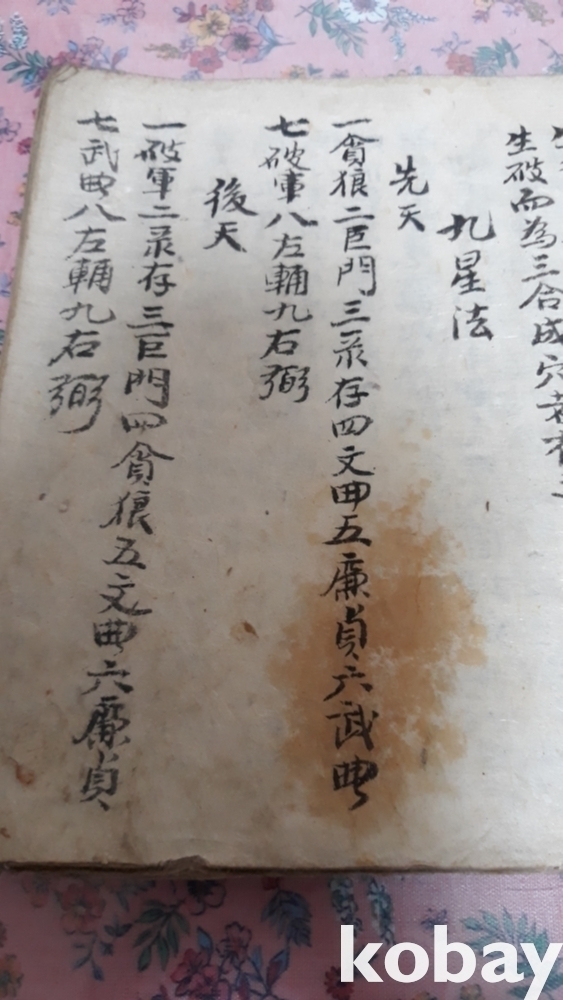 生破而為三合成穴者
九星法
先天
一貪狼二巨門三彔存四文曲五廉貞六武曲
七破軍八左輔九右弼
後天
一破軍二彔存三巨門四貪狼五文曲六廉貞
七武曲八左輔九右弼
kobay